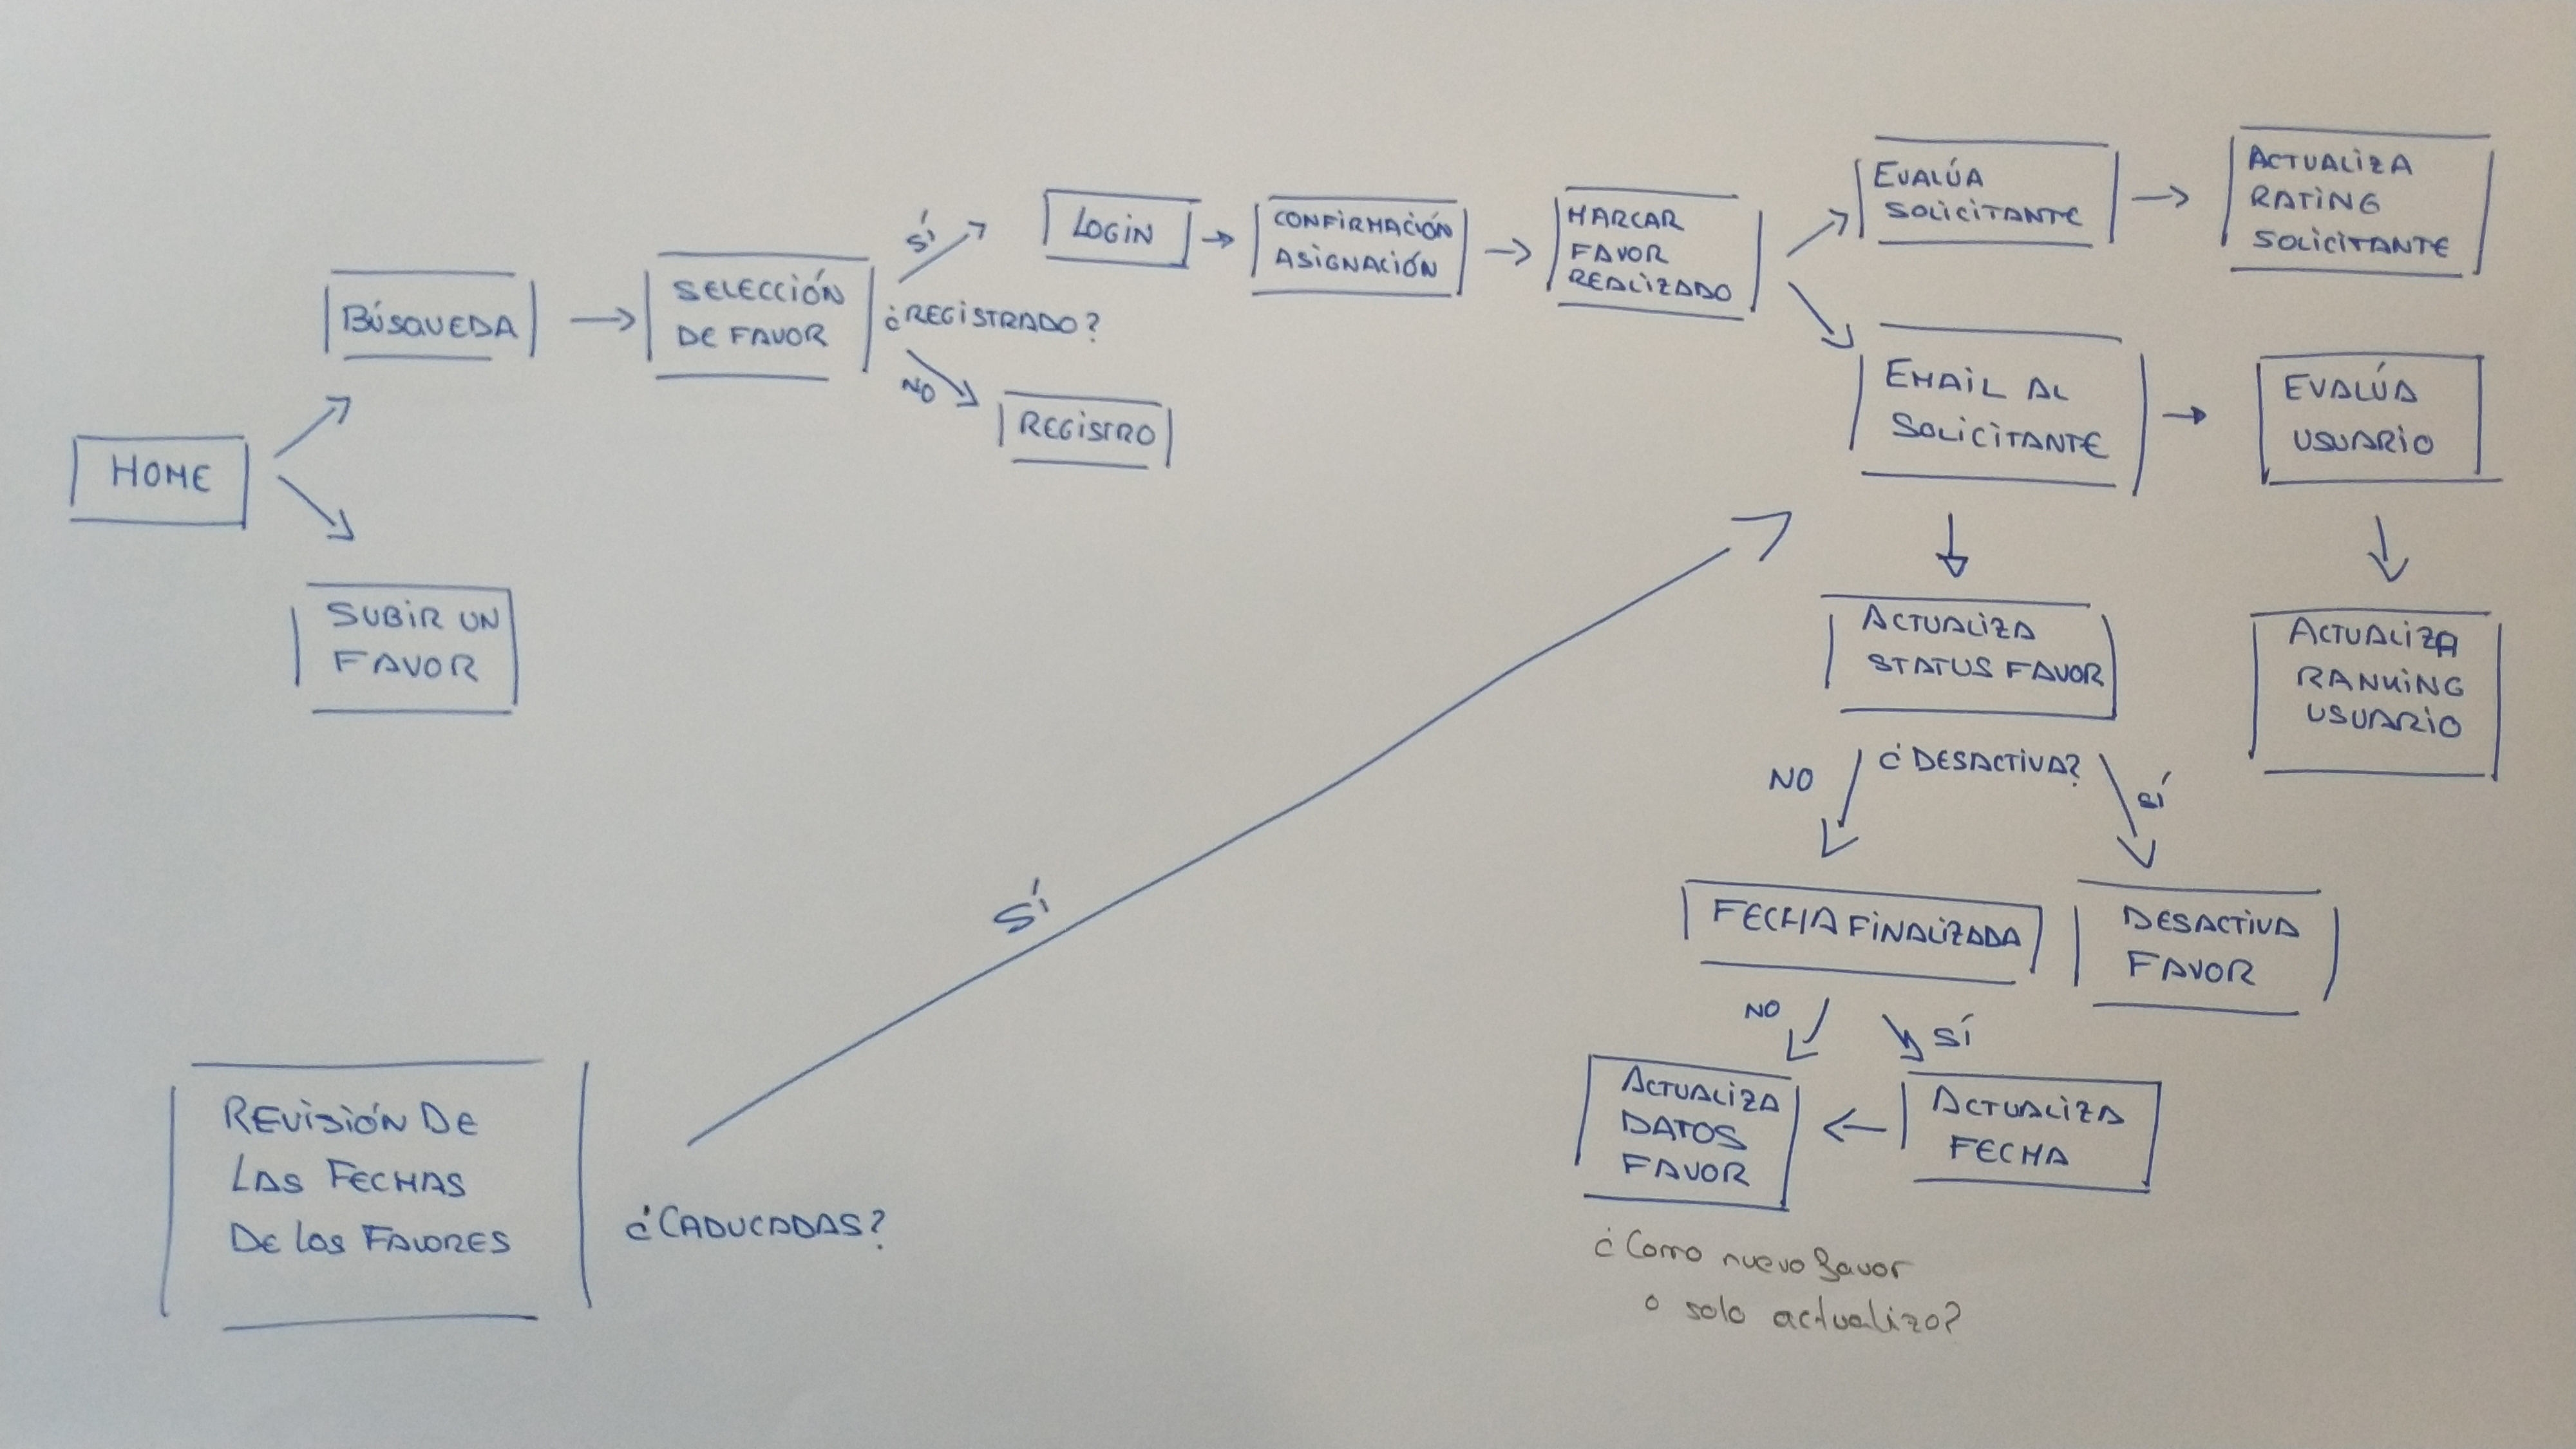 HOME
BÚSQUEDA
SUBIR UN
FAVOR
SELECCIÓN
DE FAVOR
¿REGISTRADO?
SÍ
NO
LOGIN
REGISTRO
CONFIRMACIÓN
ASIGNACIÓN
MARCAR
FAVOR
REALIZADO
EVALÚA
SOLICITANTE
ACTUALIZA
RATING
SOLICITANTE
EMAIL AL
SOLICITANTE
EVALÚA
USUARIO
ACTUALIZA
RANKING
USUARIO
ACTUALIZA
STATUS FAVOR
¿DESACTIVA?
NO
SÍ
FECHA FINALIZADA
DESACTIVA
FAVOR
NO
SÍ
ACTUALIZA
DATOS
FAVOR
ACTUALIZA
FECHA
¿Como nuevo favor
o solo actualizo?
REVISIÓN DE
LAS FECHAS
DE LOS FAVORES
¿CADUCADAS?
SÍ